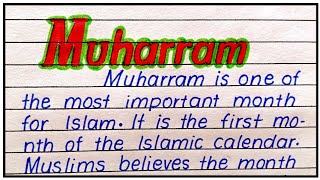 Muharram
Muharram is one of
the most important month
for Islam. It is the first mo-
nth of the Islamic calendar.
Muslims believes the month